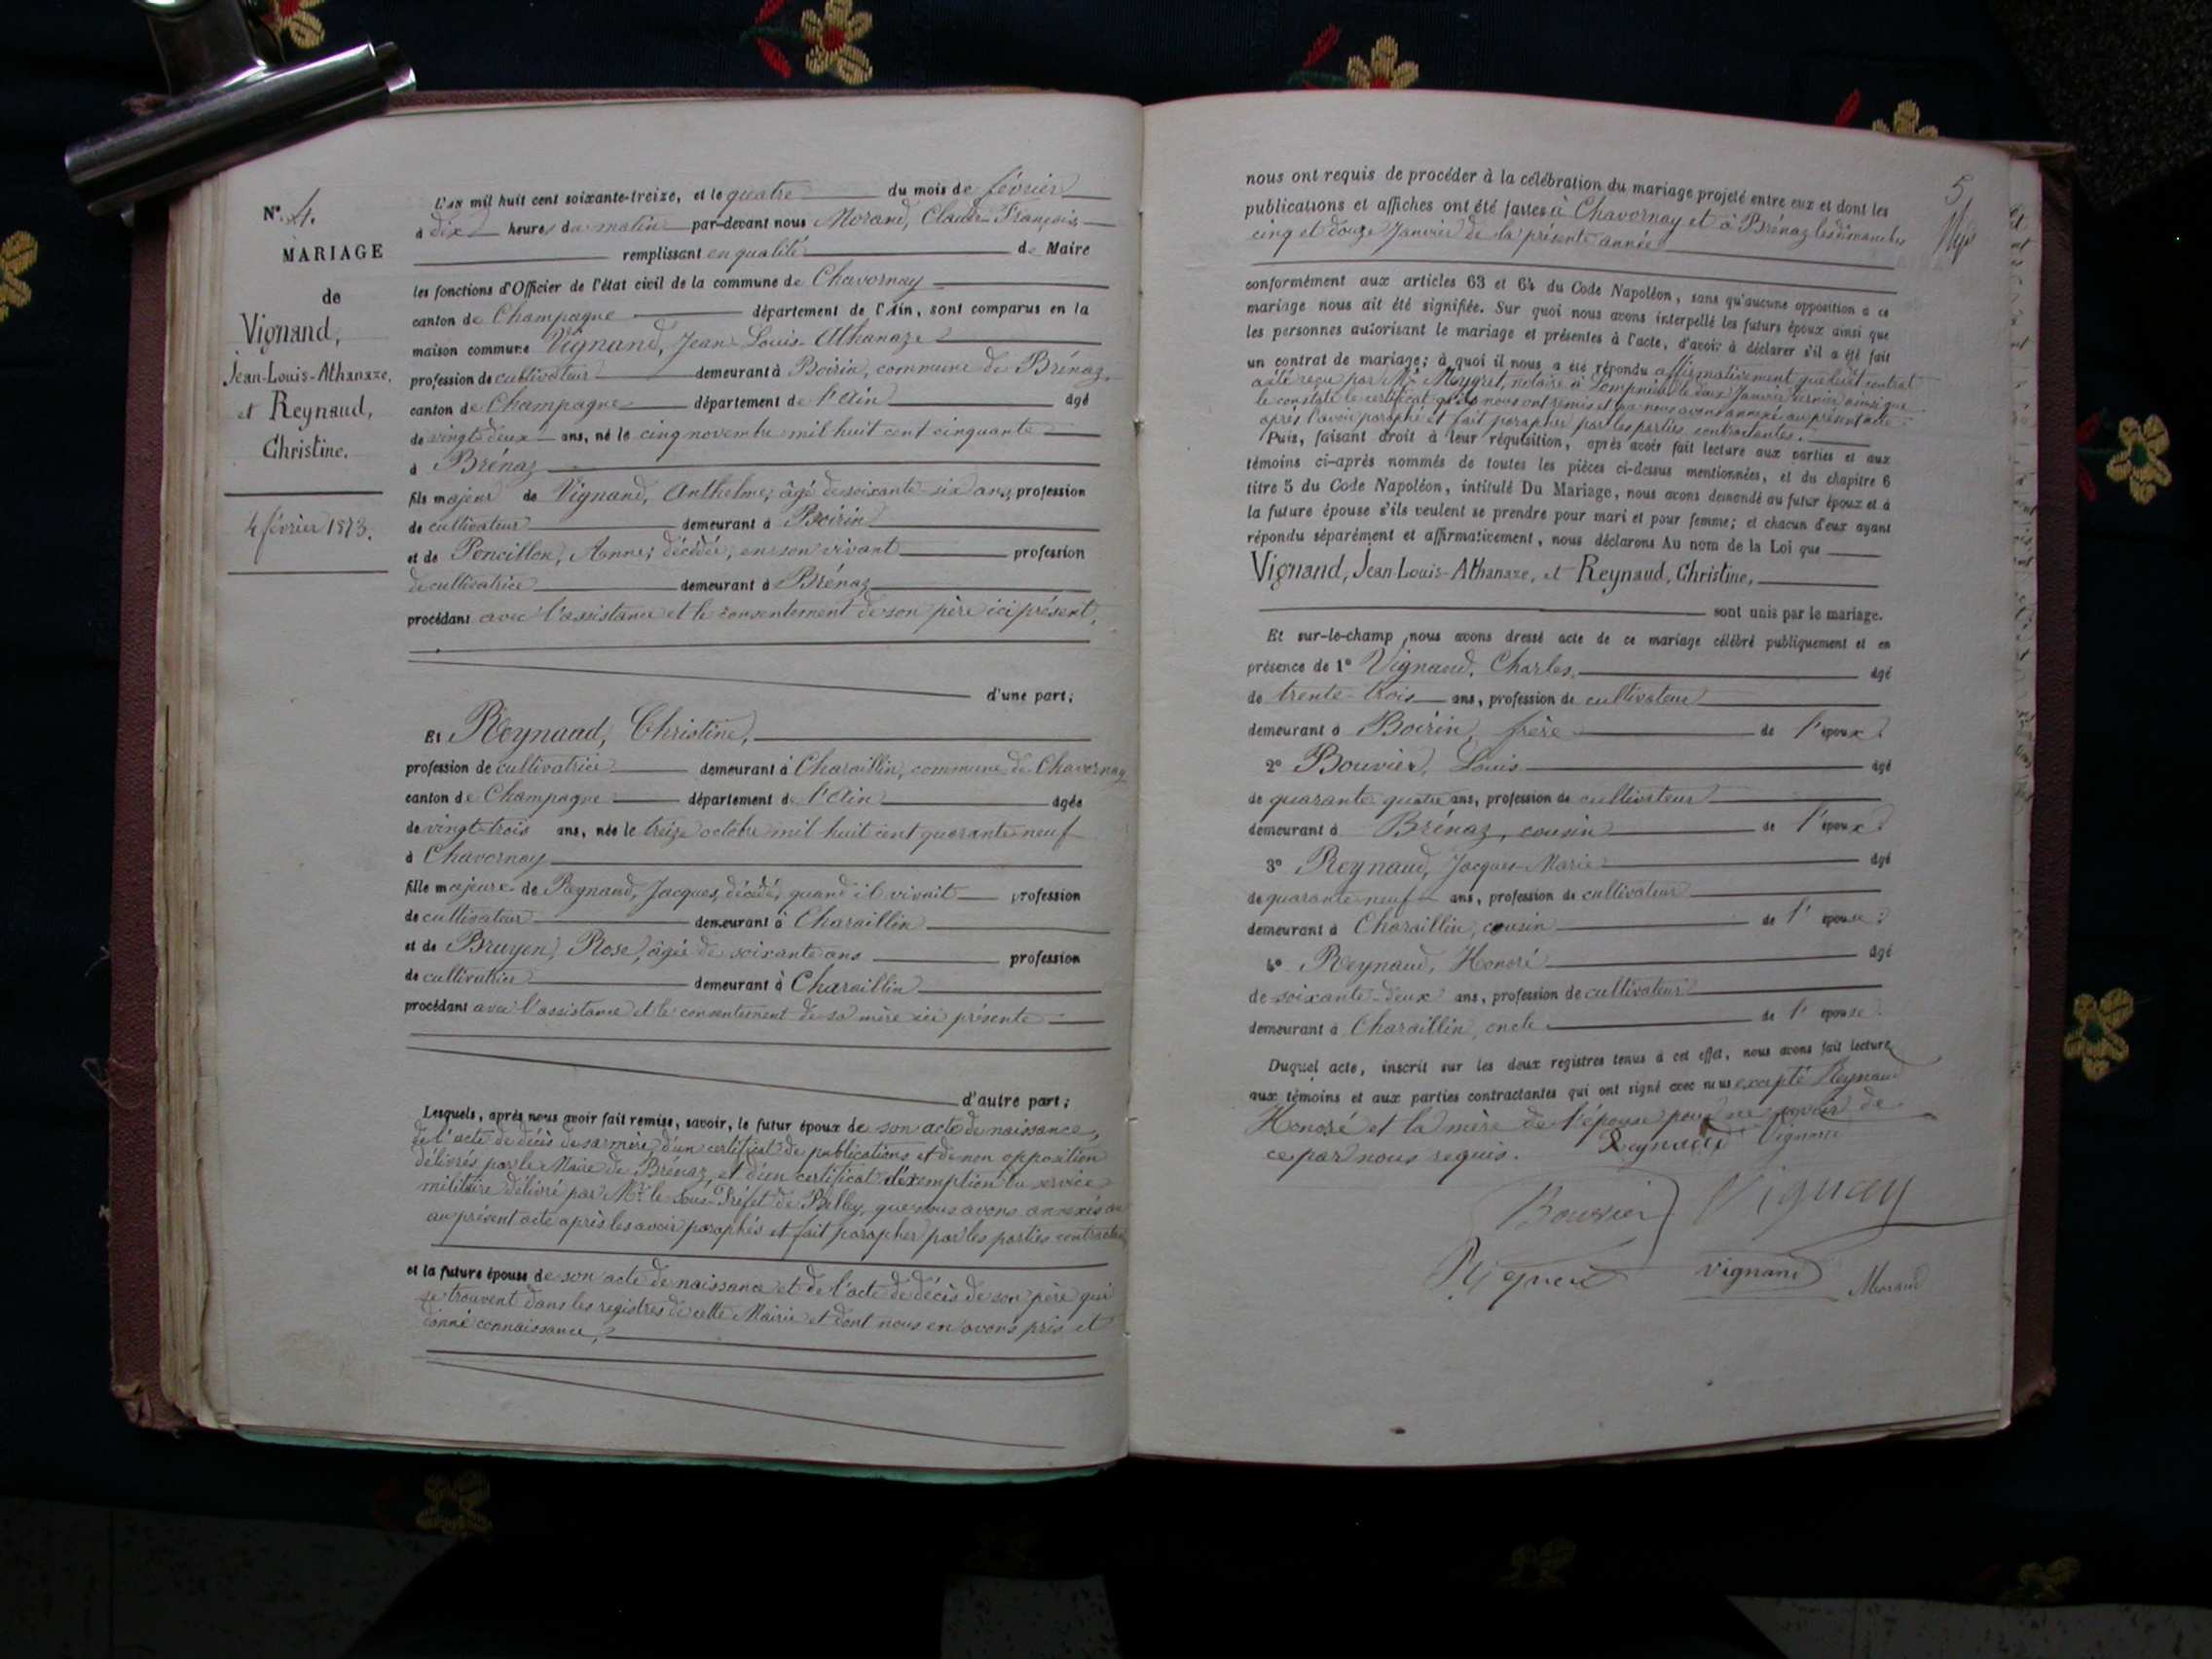 N° 4.
MARIAGE
de
Vignand,
Jean-Louis-Athanaze,
et Reynaud,
Christine.
4 février 1873.
L'an mil huit cent soixante-treize, et le quatre du mois de février
à dix heures du matin par-devant nous Morand, Claude-François
remplissant en qualité de Maire
les fonctions d'Officier de l'état civil de la commune de Chavornay
canton de Champagne département de l'Ain, sont comparus en la
maison commune Vignand, Jean-Louis-Athanaze
profession de cultivateur demeurant à Boirin, commune de Brénaz,
canton de Champagne département de l'Ain âgé
de vingt-deux ans, né le cinq novembre mil huit cent cinquante
à Brénaz
fils majeur de Vignand, Anthelme, âgé de soixante-six ans, profession
de cultivateur demeurant à Boirin
et de Poncillon, Anne, décédée, en son vivant profession
de cultivatrice demeurant à Brénaz
procédant avec l'assistance et le consentement de son père ici présent,
d'une part;
Et Reynaud, Christine,
profession de cultivatrice demeurant à Charaillin, commune de Chavornay
canton de Champagne département de l'Ain âgée
de vingt-trois ans, née le treize octobre mil huit cent quarante-neuf
à Chavornay
fille majeure de Reynaud, Jacques, décédé, quand il vivait profession
de cultivateur demeurant à Charaillin
et de Bruyen, Rose, âgée de soixante ans profession
de cultivatrice demeurant à Charaillin
procédant avec l'assistance et le consentement de sa mère ici présente
d'autre part;
Lesquels, après nous avoir fait remise, savoir, le futur époux de son acte de naissance,
de l'acte de décès de sa mère, d'un certificat de publications et de non opposition
délivrés par le Maire de Brénaz, et d'un certificat d'exemption du service
militaire délivré par Mr. le Sous-Préfet de Belley, que nous avons annexés au
au présent acte après les avoir paraphés et fait parapher par les parties contractantes
et la future épouse de son acte de naissance et de l'acte de décès de son père qui
se trouvent dans les registres de cette Mairie et dont nous en avons pris et
donné connaissance,
5
nous ont requis de procéder à la célébration du mariage projeté entre eux et dont les
publications et affiches ont été faites à Chavornay et à Brénaz les dimanches
cinq et douze Janvier de la présente année
conformément aux articles 63 et 64 du Code Napoléon, sans qu'aucune opposition à ce
mariage nous ait été signifiée. Sur quoi nous avons interpellé les futurs époux ainsi que
les personnes autorisant le mariage et présentes à l'acte, d'avoir à déclarer s'il a été fait
un contrat de mariage; à quoi il nous a été répondu affirmativement que ledit contrat
a été reçu par Me Meygret, notaire à Lompnieu le deux Janvier dernier ainsi que
le constate le certificat qu'ils nous ont remis et que nous avons annexé au présent acte
après l'avoir paraphé et fait parapher par les parties contractantes.
Puis, faisant droit à leur réquisition, après avoir fait lecture aux parties et aux
témoins ci-après nommés de toutes les pièces ci-dessus mentionnées, et du chapitre 6
titre 5 du Code Napoléon, intitulé Du Mariage, nous avons demandé au futur époux et à
la future épouse s'ils veulent se prendre pour mari et pour femme; et chacun d'eux ayant
répondu séparément et affirmativement, nous déclarons Au nom de la Loi que
Vignand, Jean-Louis-Athanaze, et Reynaud, Christine,
sont unis par le mariage.
Et sur-le-champ nous avons dressé acte de ce mariage célébré publiquement et en
présence de 1° Vignand, Charles, âgé
de trente-trois ans, profession de cultivateur
demeurant à Boirin, frère de l'époux.
2° Bouvier, Louis âgé
de quarante quatre ans, profession de cultivateur
demeurant à Brénaz, cousin de l'époux.
3° Reynaud, Jacques-Marie âgé
de quarante neuf ans, profession de cultivateur
demeurant à Charaillin, cousin de l'épouse.
4° Reynaud, Honoré âgé
de soixante-deux ans, profession de cultivateur
demeurant à Charaillin, oncle de l'épouse.
Duquel acte, inscrit sur les deux registres tenus à cet effet, nous avons fait lecture
aux témoins et aux parties contractantes qui ont signé avec nous excepté Reynaud
Honoré et la mère de l'épouse pour ne savoir de
ce par nous requis. Reynaud Vignand
Bouvier
vignand Morand